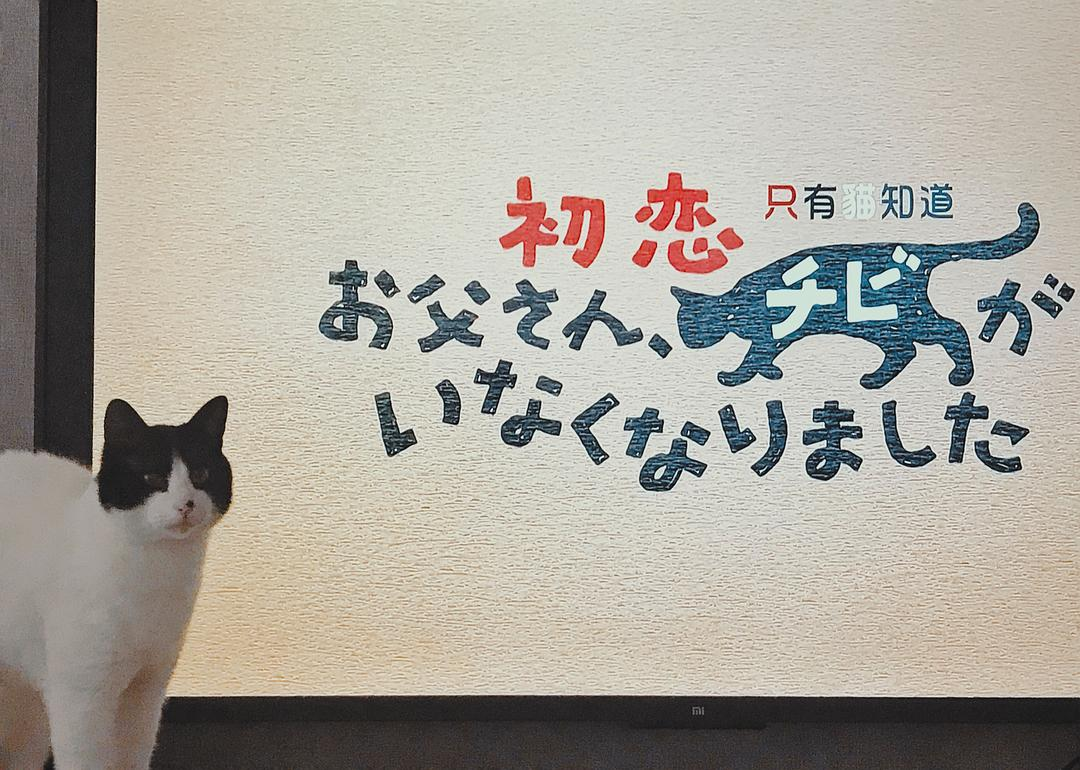 初恋
只有貓知道
お父さん、チビが
いなくなりました
mi